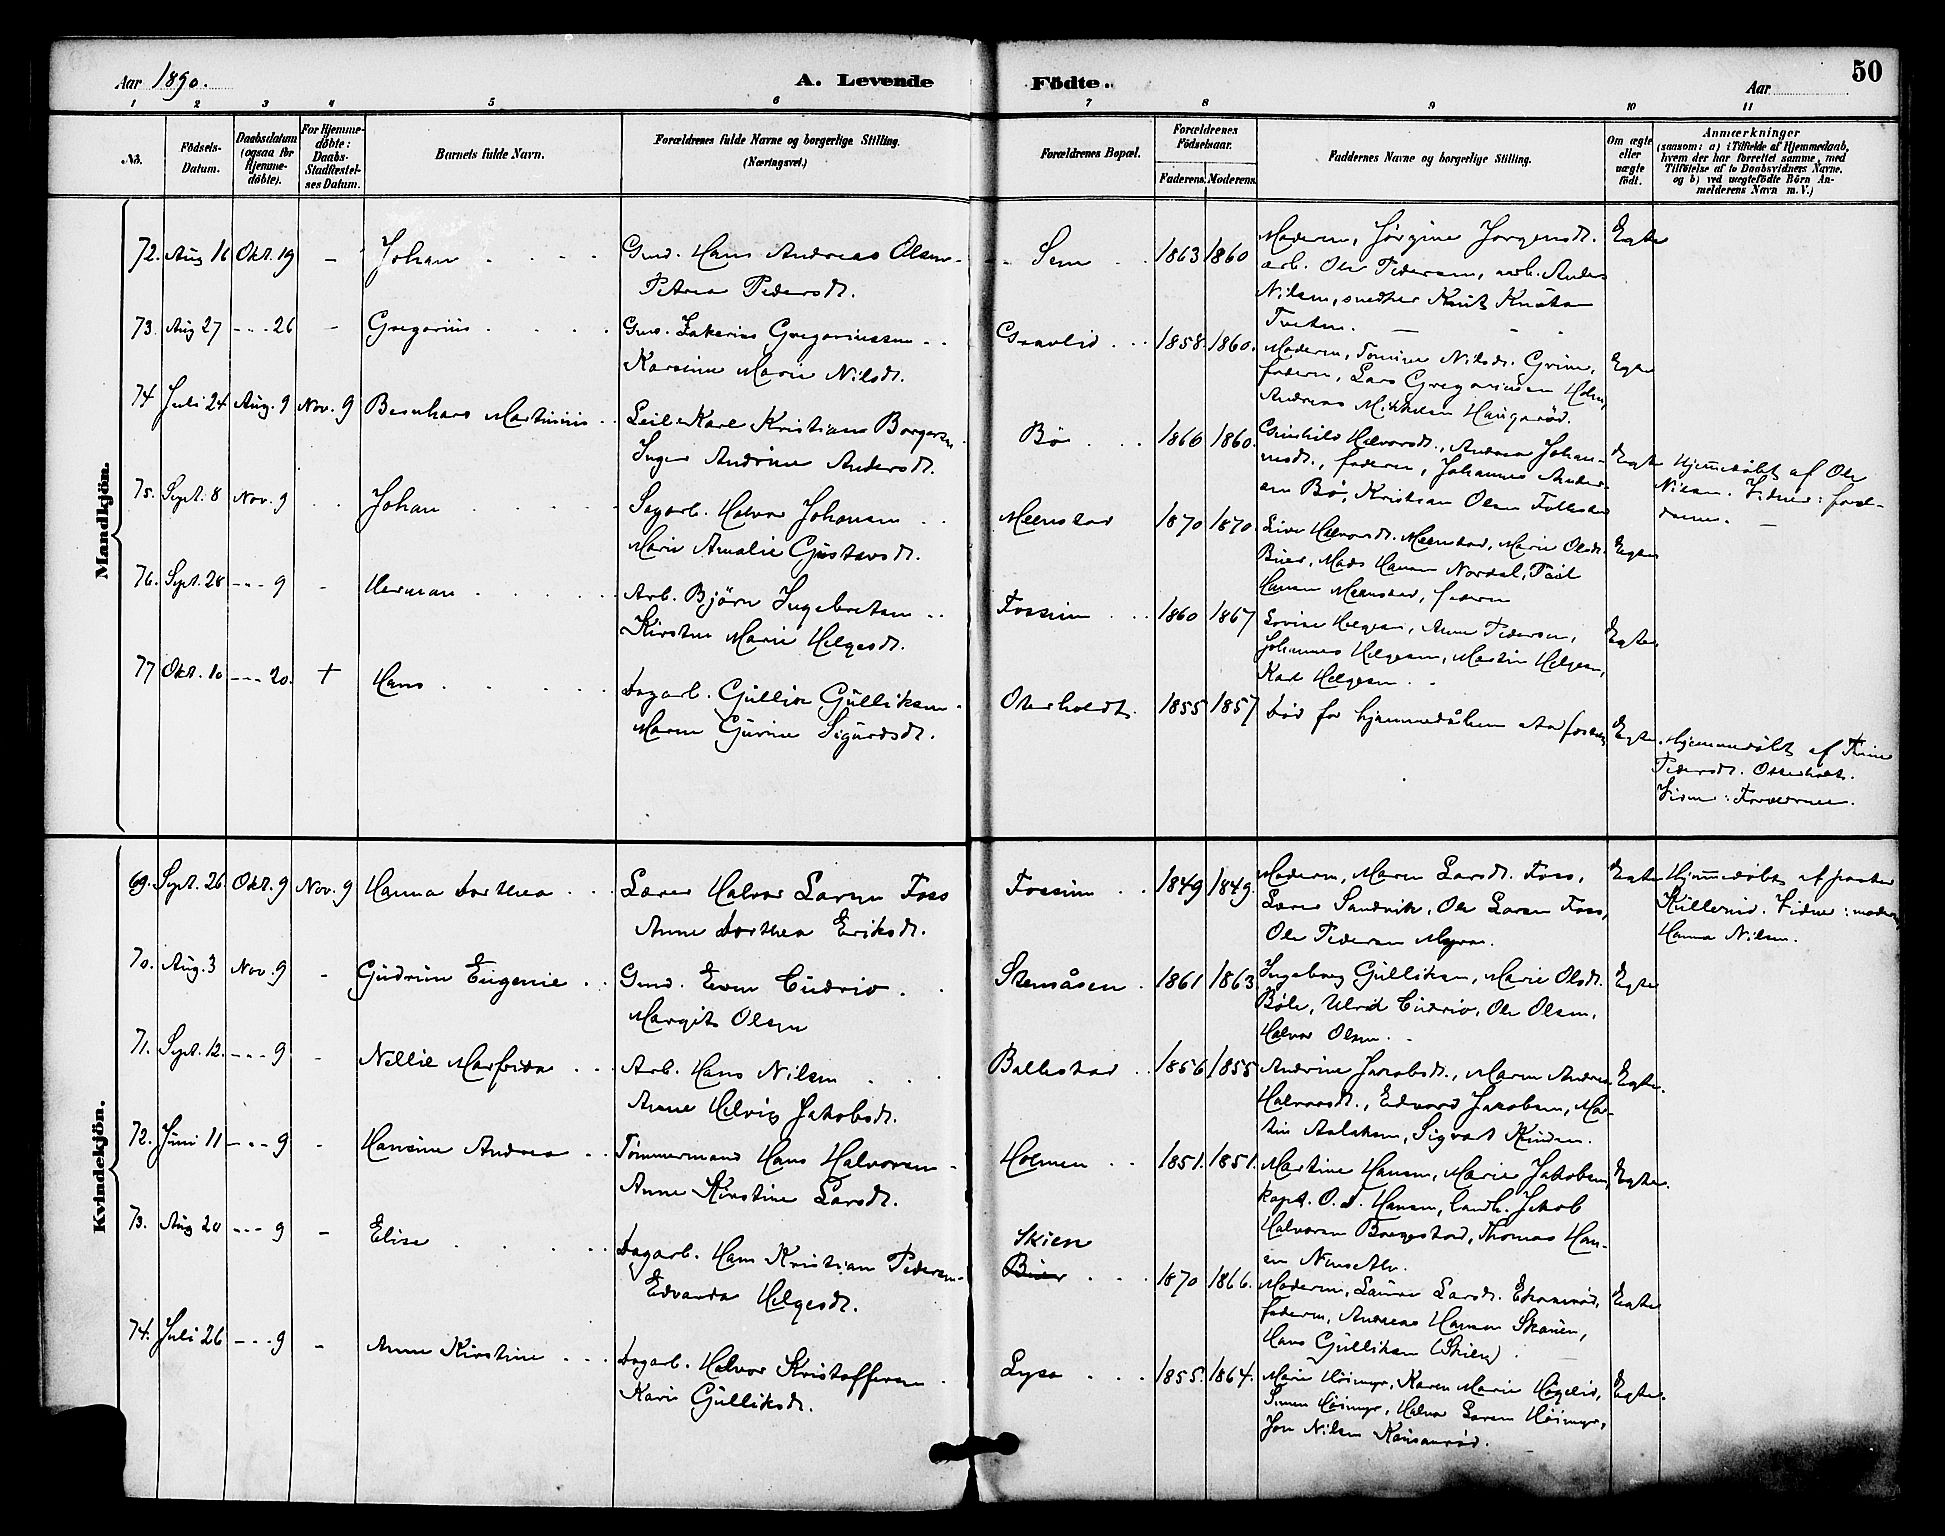 Aar 1890.
A. Levende Födte.
Aar
50
1 2 3 4 5 6 7 8 9 10 11
No.
Födsels-Datum.
Daabsdatum (ogsaa for Hjemmedöbte).
For Hjemmedöbte: Daabs-Stadfæstelses Datum.
Barnets fulde Navn.
Forældrenes fulde Navne og borgerlige Stilling.
(Næringsvei.)
Forældrenes Bopæl.
Forældrenes Födselsaar.
Faderens. Moderens.
Faddernes Navne og borgerlige Stilling.
Om ægte eller uægte födt.
Anmærkninger
(saasom: a) i Tilfælde af Hjemmedaab, hvem der har forrettet samme, med Tilföielse af to Daabsvidners Navne, og b) ved uægtefödte Börn Anmelderens Navn m. V.)
Mandkjön.
72. Aug 16 Okt. 19 - Johan
Gmd. Hans Andreas Olsen
Petrea Pedersdt.
Sem 1863 1860
Moderen, Jörgine Jörgensdt.
arb. Ole Pedersen, arb. Anders
Nilsen, snedker Knut Knutsen
Tveten.
Egte
73. Aug 27 --- 26 - Gregorius
Gmd. Zakarias Gregoriussen
Karoline Marie Nilsdt.
Gravlid 1858. 1860.
Moderen, Tomine Nilsdt. Grine,
faderen, Lars Gregoriussen Holm,
Andreas Mikkelsen Haugeröd.
Egte
74 Juli 24 Aug. 9 Nov. 9 Bernhard Martinius
Leil. Karl Kristian Borgersen
Inger Andrine Andersdt.
Bö 1866 1860.
Gunhild Halvorsdt., Andrea Johan-
nesdt., faderen, Johannes Anders-
en Bö, Kristian Olsen Falkstad
Egte
Hjemmedöbt af Ole
Nilsen. Vidner: foræl-
drene.
75. Sept. 8 Nov. 9 Johan
Sagarb. Halvor Johansen
Marie Amalie Gustavsdt.
Melnstad 1870 1870.
Live Halvorsdt. Melnstad, Marie Olsdt.
Buer, Mads Hansen Nordal,
Hansen Melnstad, faderen
Egte
76. Sept. 28 --- 9 - Herman
Arb. Björn Ingebretsen
Kirsten Marie Helgesdt.
Fossum 1860 1867
Lovise Helgesen, Anne Pedersen,
Johannes Helgesen, Martin Helgesen,
Karl Helgesen.
Egte.
77 Okt. 10 --- 20. † Hans
Dagarb. Gulliv Gulliksen
Maren Gurine Sigurdsdt.
Oterholdt. 1855 1857
Död för hjemmedåben
Egte.
Hjemmedöbt af
Pedersdt. Otterholdt.
Vidne: Forældrene.
Kvindekjön.
69. Sept. 26 Okt. 9 Nov. 9 Hanna Dorthea
Lærer Halvor Larsen Foss
Anne Dorthea Eriksdt.
Fossum 1849 1849.
Moderen, Maren Larsdt. Foss,
Lærer Sandvik, Ole Larsen Foss,
Ole Pedersen Myren.
Egte
Hjemmedöbt af pastor
Killerud. Vidner: moderen,
Hanna Nilsen.
70. Aug. 3 Nov. 9 - Gudrun Eugenie
Gmd. Even Cudrio
Margit Olsen
Stensåsen 1861 1863
Ingeborg Gulliksen, Marie Olsdt.
Böle, Ulrik Cudrio, Ole Olsen,
Halvor Olsen.
Egte
71. Sept. 12. --- 9 - Nellie Marfrida
Arb. Hans Nilsen
Anne Helvig Jakobsdt.
Ballestad 1856 1855
Andrine Jacobsdt., Maren Andrea
Halvorsdt., Edvard Jacobsen, Mar-
tin Aslaksen, Sigvart Kinden.
Egte.
72. Juni 11 --- 9 - Hansine Andrea
Tömmermand Hans Halvorsen
Anne Kirstine Larsdt.
Holmen 1851. 1851.
Martine Hansen, Marie Jakobsen,
kapt. O. J. Hansen, landh. Jakob
Halvorsen Borgestad, Thomas Han-
sen
Egte.
73. Aug 20 --- 9 - Elise
Dagarb. Hans Kristian Pedersen
Edvarda Helgesdt.
Skien
Buer 1870 1866.
Moderen, Laura Larsdt.
faderen, Andreas Hansen Skauen,
Hans Gulliksen (Skien).
Egte
74. Juli 26 --- 9 - Anne Kirstine
Dagarb. Halvor Kristoffersen
Kari Gulliksdt.
Lysa 1855. 1864.
Marie Höimyr, Karen Marie Högelid,
Simen Höimyr, Halvor Larsen Höimyr,
Jon Nilsen
Egte.